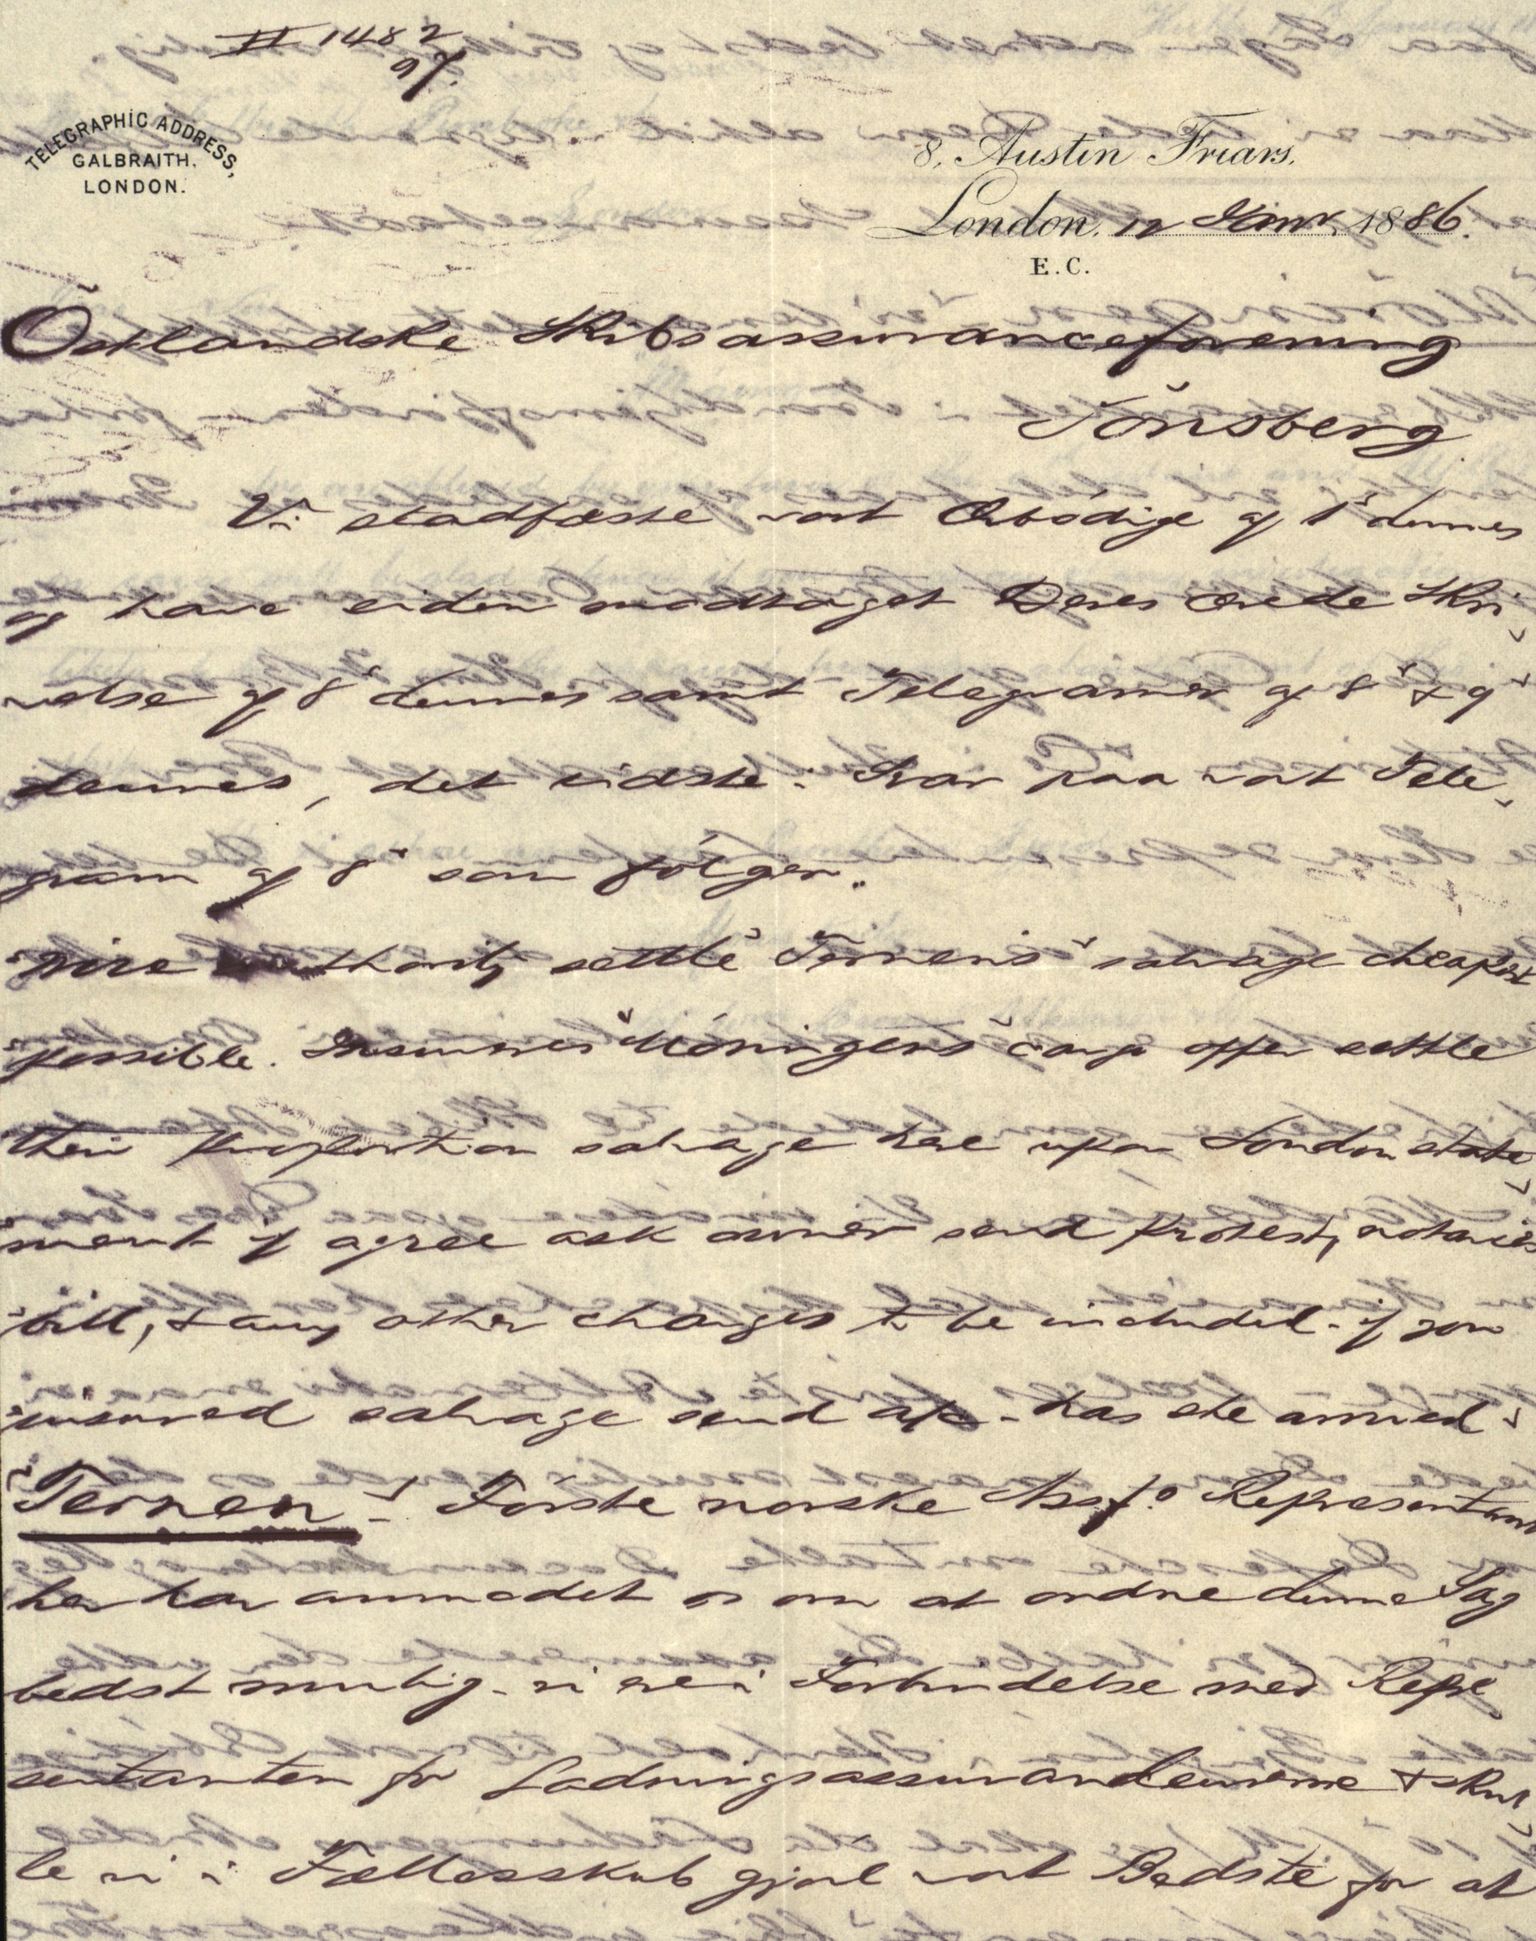 II 1482
97.
TELEGRAPHIC ADDRESS,
GALBRAITH.
LONDON.
8, Austin Friars,
London. 12 1886.
E.C.
Östlandske Skibsassuranceforening
Tönsberg
Vi stadfæste vort Ærbödige af 1ᵈ dennes
og have siden modtaget Deres ærede Skri
velse af 8ᵈ dennes samt Telegramer af 8ᵈ & 9ᵈ
dennes, det sidste i Svar paa vort Tele
gram af 8ᵈ som fölger.
"give authority settle "Ternens" salvage cheapest
possible. Insurers "Möringens" cargo offer settle
their proportion salvage here upon London state
ment if agree ask owner send protest, notaries
bill, & any other charges to be included - if you
insured salvage send a/c - has she arrived"
"Ternen" - Förste norske Assf.º Representant
her har anmodet os om at ordne denne Sag
bedst mulig - vi ere i Forbindelse med Repre
sentanten for Ladningsassurandeurerne & skul
le vi i Fællesskab gjöre vort Bedste for at